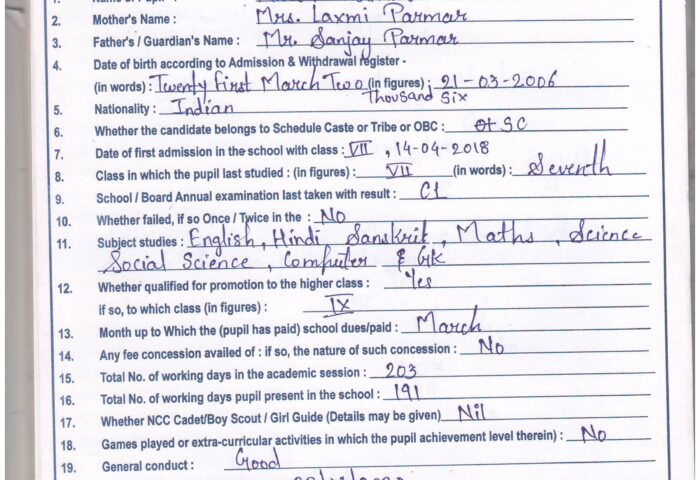 2. Mother's Name : Mrs. Laxmi Parmar
3. Father's / Guardian's Name : Mr. Sanjay Parmar
4. Date of birth according to Admission & Withdrawal register -
(in words) : Twenty first March Two (in figures) : 21-03-2006
Thousand Six
5. Nationality : Indian
6. Whether the candidate belongs to Schedule Caste or Tribe or OBC : SC
7. Date of first admission in the school with class : VII , 14-04-2018
8. Class in which the pupil last studied : (in figures) : VII (in words) : Seventh
9. School / Board Annual examination last taken with result : C1
10. Whether failed, if so Once / Twice in the : No
11. Subject studies : English, Hindi Sanskrit, Maths, Science
Social Science, Computer & GK
12. Whether qualified for promotion to the higher class : Yes
if so, to which class (in figures) : IX
13. Month up to Which the (pupil has paid) school dues/paid : March
14. Any fee concession availed of : if so, the nature of such concession : No
15. Total No. of working days in the academic session : 203
16. Total No. of working days pupil present in the school : 191
17. Whether NCC Cadet/Boy Scout / Girl Guide (Details may be given) Nil
18. Games played or extra-curricular activities in which the pupil achievement level therein) : No
19. General conduct : Good